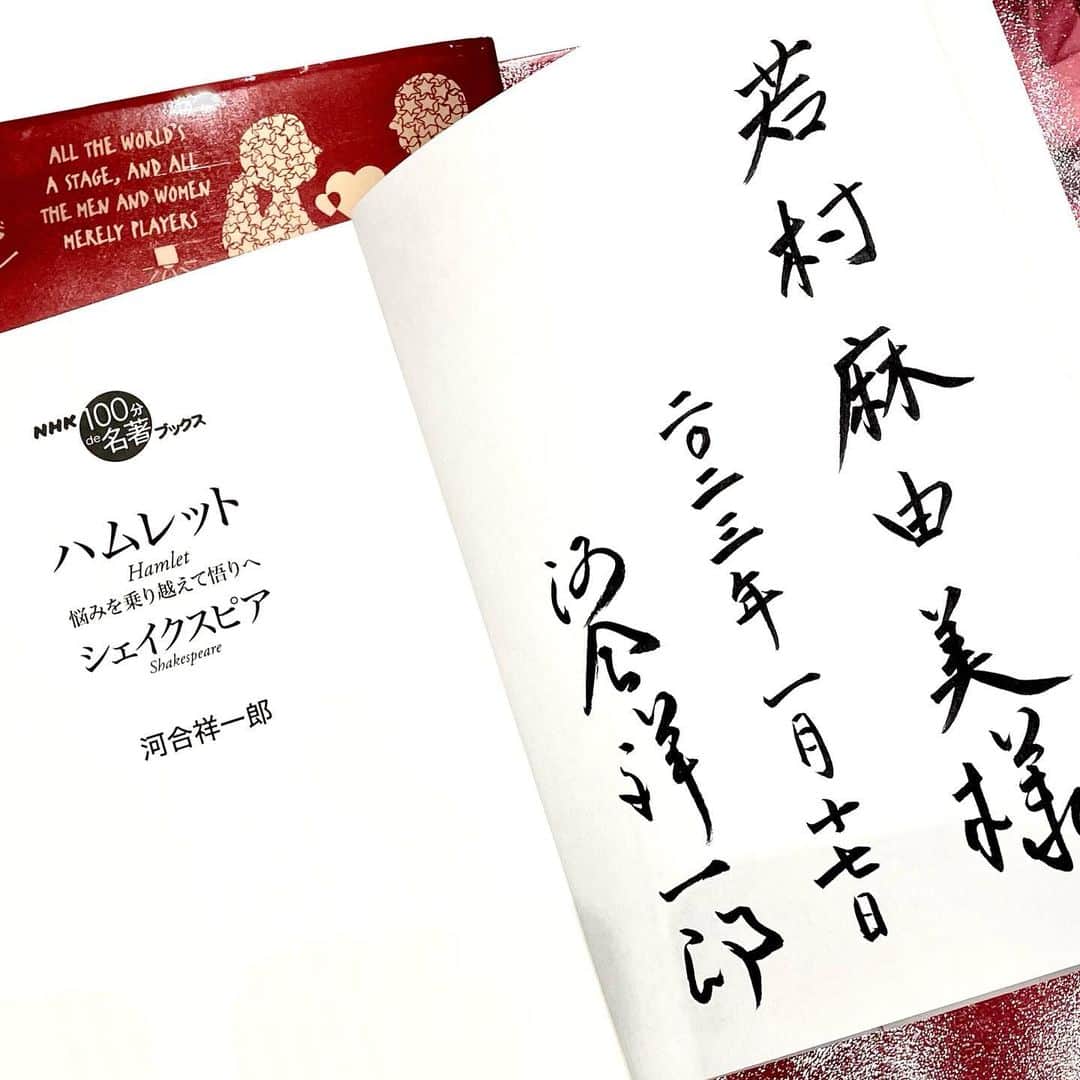 ALL THE WORLD'S
A STAGE, AND ALL
THE MEN AND WOMEN
MERELY PLAYERS
NHK 100分 de 名著 ブックス
ハムレット
Hamlet
悩みを乗り越えて悟りへ
シェイクスピア
Shakespeare
河合祥一郎
若村麻由美様
二〇二三年一月十七日
河合祥一郎